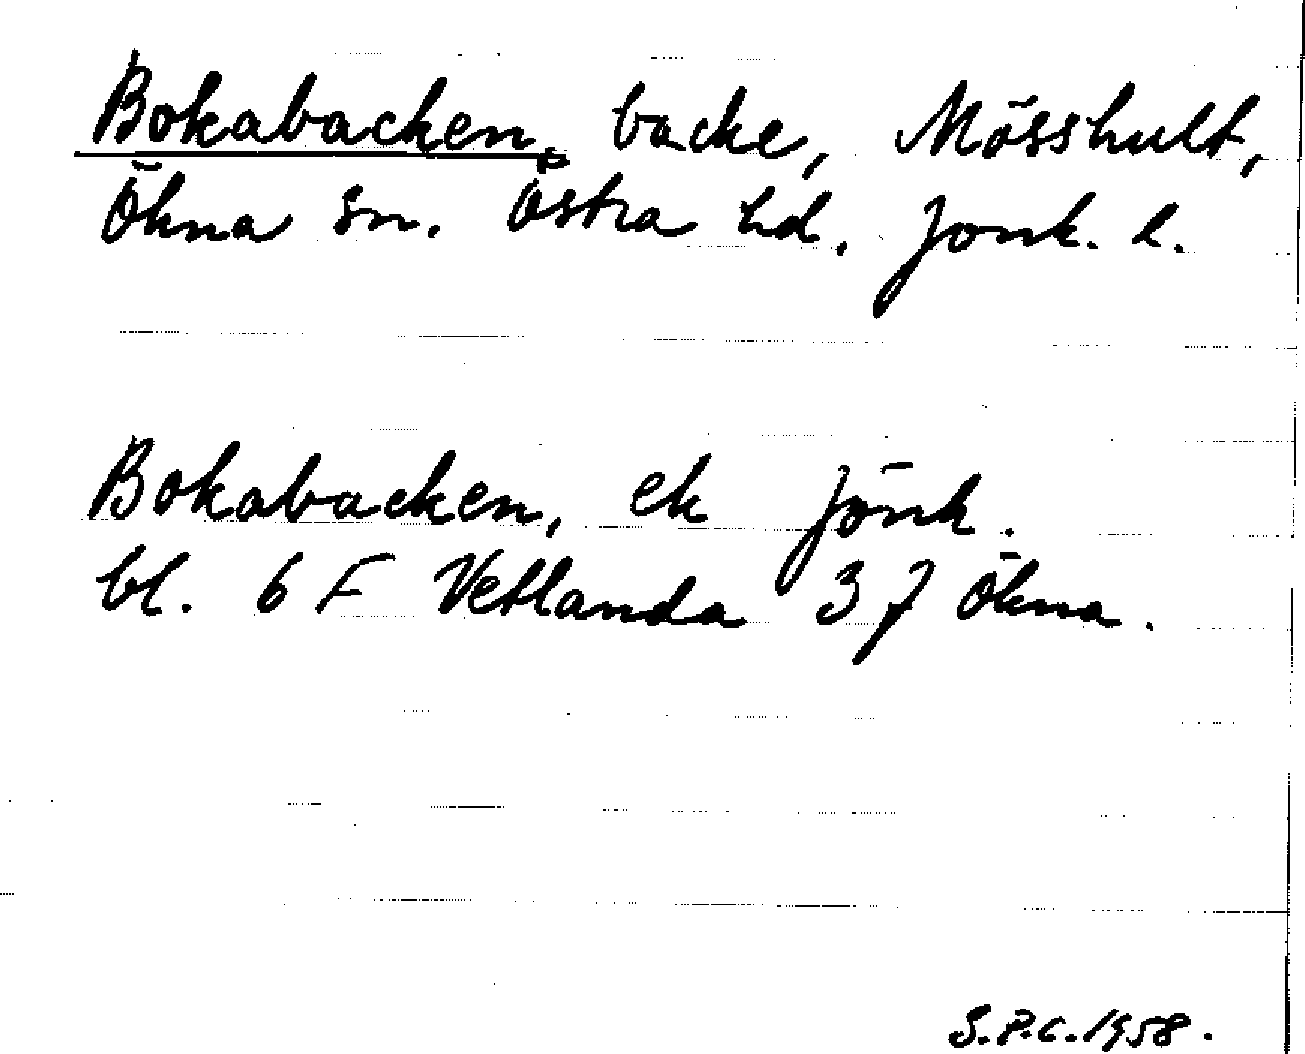 Bokabacken, backe, Mösshult,
Ökna sn. Östra hd. Jönk. l.
Bokabacken, ek Jönk.
bl. 6 F Vetlanda 3 j Ökna.
S.P.C. 1958.